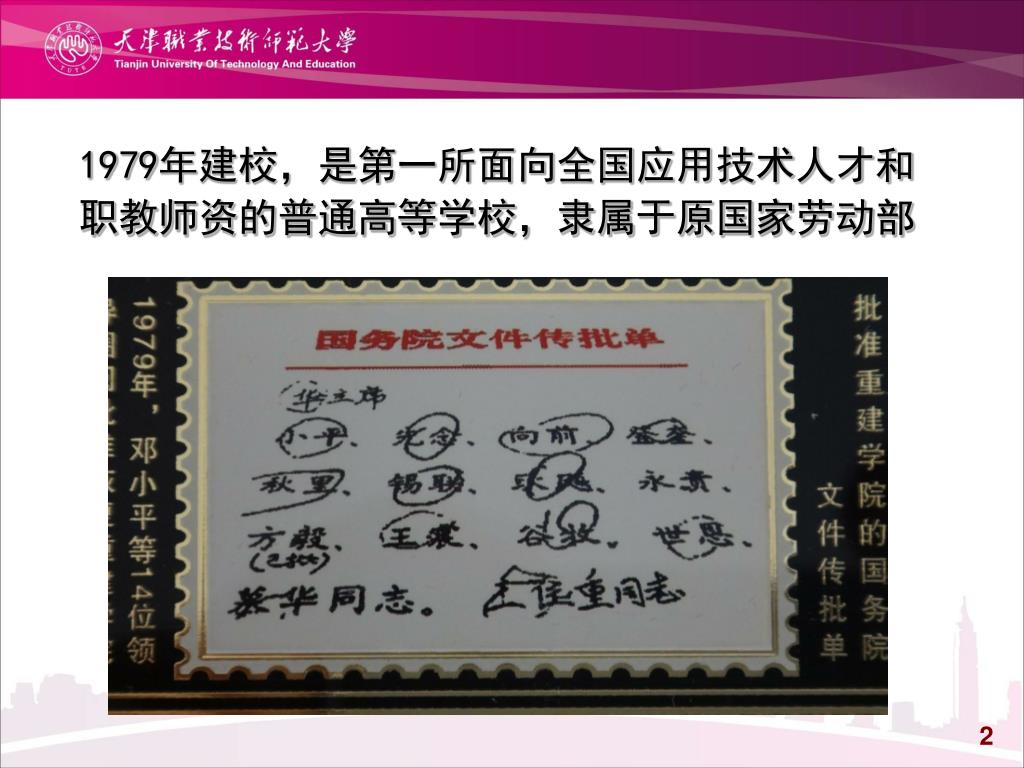 天津職業技術師範大学
Tianjin University Of Technology And Education
1979年建校，是第一所面向全国应用技术人才和
职教师资的普通高等学校，隶属于原国家劳动部
1979年，邓小平等14位领
国务院文件传批单
华主席
小平、纪念、向前、登奎、
秋里、锡联、耿飚、永贵、
方毅、王震、谷牧。
慕华同志。
同志
批准重建学院的国务院
文件传批单
2